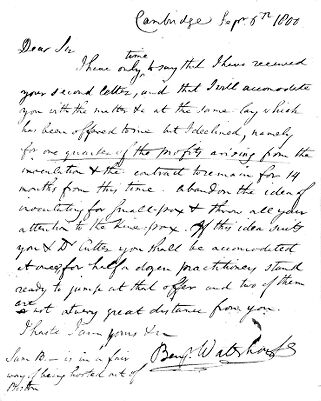 Cambridge Sept. 6th 1800
Dear Sir
time
I have only to say that I have received
your second letter, and that I will accomodate
you with the matter &c at the same lay which
has been offered to me but I declined, namely
for one quarter of the profits arising from the
inoculation & the contract to remain for 14
months from this time. Abandon the idea of
inoculating for Small-pox & throw all your
attention to the kine-pox. If this idea suits
you & Dr Cutter you shall be accomodated
at once, for half a dozen practitioners stand
ready to jump at that offer and two of them
are
not at very great distance from you.
I haste I am yours &c
Benj. Waterhouse
is in a fair
way of being hooted out of
Boston